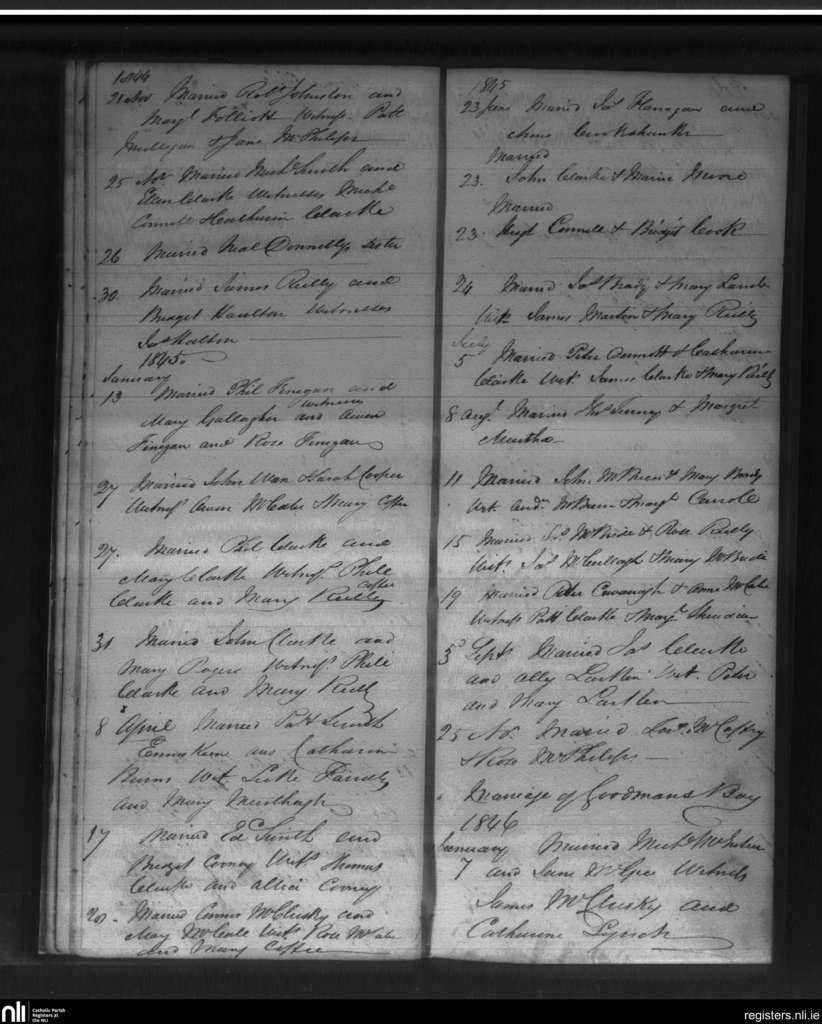 1844
21 Nov Married Robt Johnston and
Margt Folliott Witness. Patt
Mulligan & Jane McPhilips
25 Nov Married Michl Smith and
Ellen Clarke Witnesses Michl
Connell & Catharin Clarke
26 Married Neal Donnellys sister
30 Married James Reilly and
Bridget Witnesses
Jas
1845
January
13 Married Phil Finegan and
witnesses
Mary Gallagher and Owen
Finegan and Rose Finegan
27 Married John & Sarah Cooper
Witness Owen McCabe & Mary
27. Married Phil Clarke and
Mary Clarke Witness Phil
Clarke and Mary Reilly
31 Married John Clarke and
Mary Rogers Witness Phili
Clarke and Mary Reilly
8 April Married Patt Smith
and Catharin
Burns Wit. Luke Farrelly
and Mary Murthagh
17 Married Ed Smith and
Bridget Cooney Wits Thomas
Clarke and Alice Cooney
20. Married McClusky and
Mary Wits Rose McCabe
and Mary
1845
23 June Married Jas Flanagan and
Anne Crookshanks
Married
23. John Clarke & Marie Moore
Married
23. Hugh Connell & Bridget Cook
24 Married Jas Brady & Mary
Wits James Martin & Mary Reilly
July
5 Married Peter & Catharin
Clarke Wits James Clarke & Mary Reilly
8 Augt Married & Margret
Murtha
11 Married John McBrien & Mary Brady
Wit. Andw McBrien & Margt Carrole
15 Married Jas McBride & Rose Reilly
Wits Jas McCullagh & Mary McBride
19 Married Peter Cavanagh & Anne McCabe
Witness Patt Clarke & Margt
3d Sept Married Jas Clarke
and Ally Larkin Wit. Peter
and Mary Larkin
25 Nov. Married McCaffry
& Rose McPhilips
Marriage of Goodmans Boy
1846
January Married Michl
7 and Jane McGee Witness
James McClusky and
Catharine Lynch
nli
Catholic Parish
Registers at
the NLI
registers.nli.ie